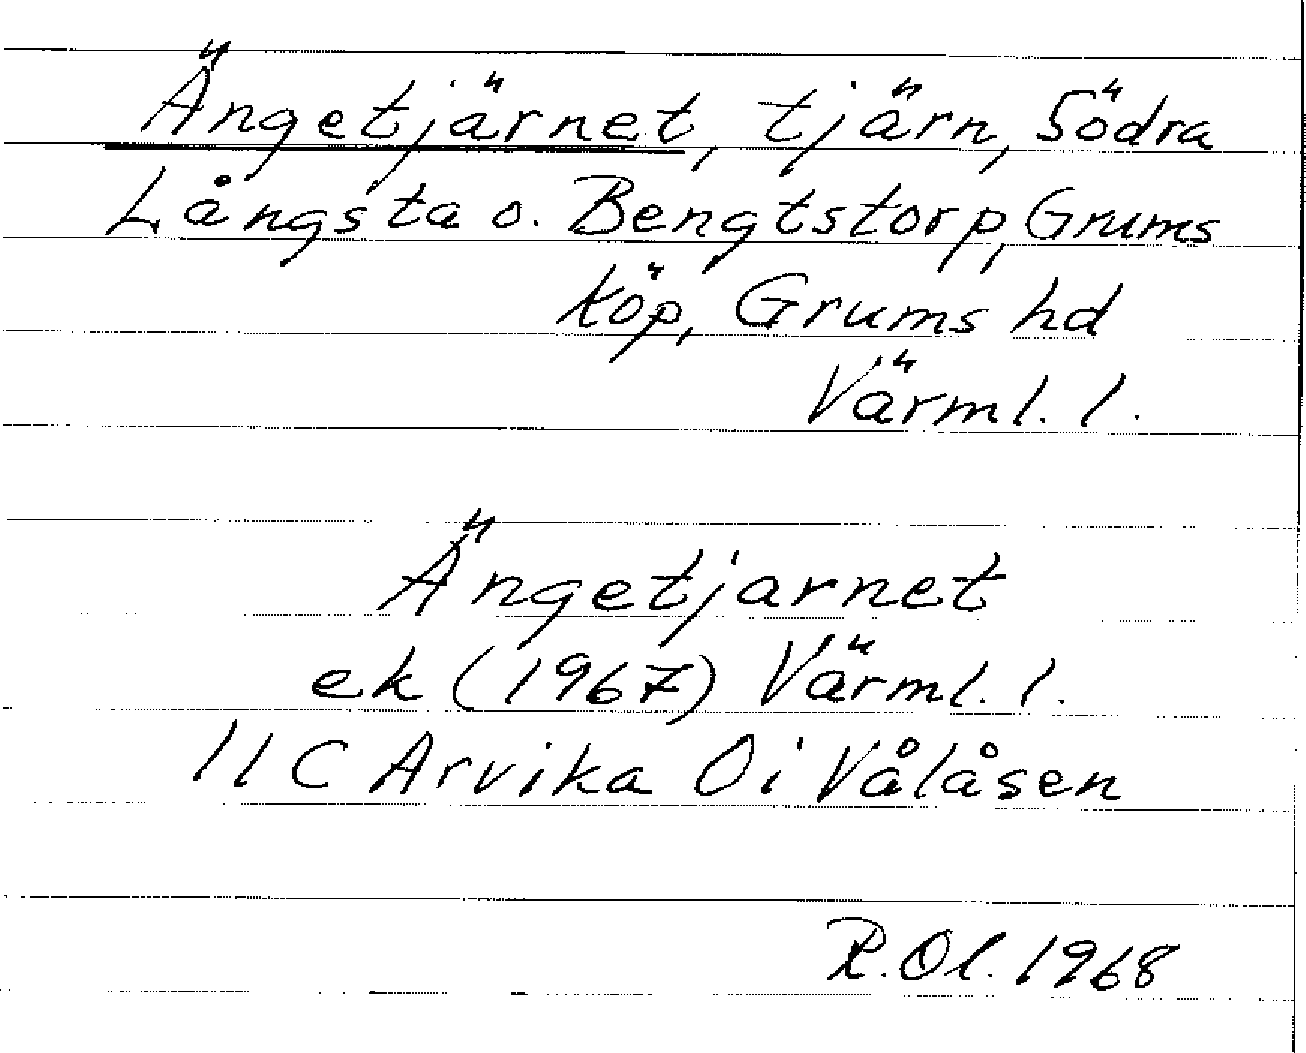 Ängetjärnet, tjärn, Södra
Långsta o. Bengtstorp, Grums
köp, Grums hd
Värml. l.
Ängetjarnet
ek (1967) Värml. l.
11 C Arvika Oi Vålåsen
R.Ol. 1968